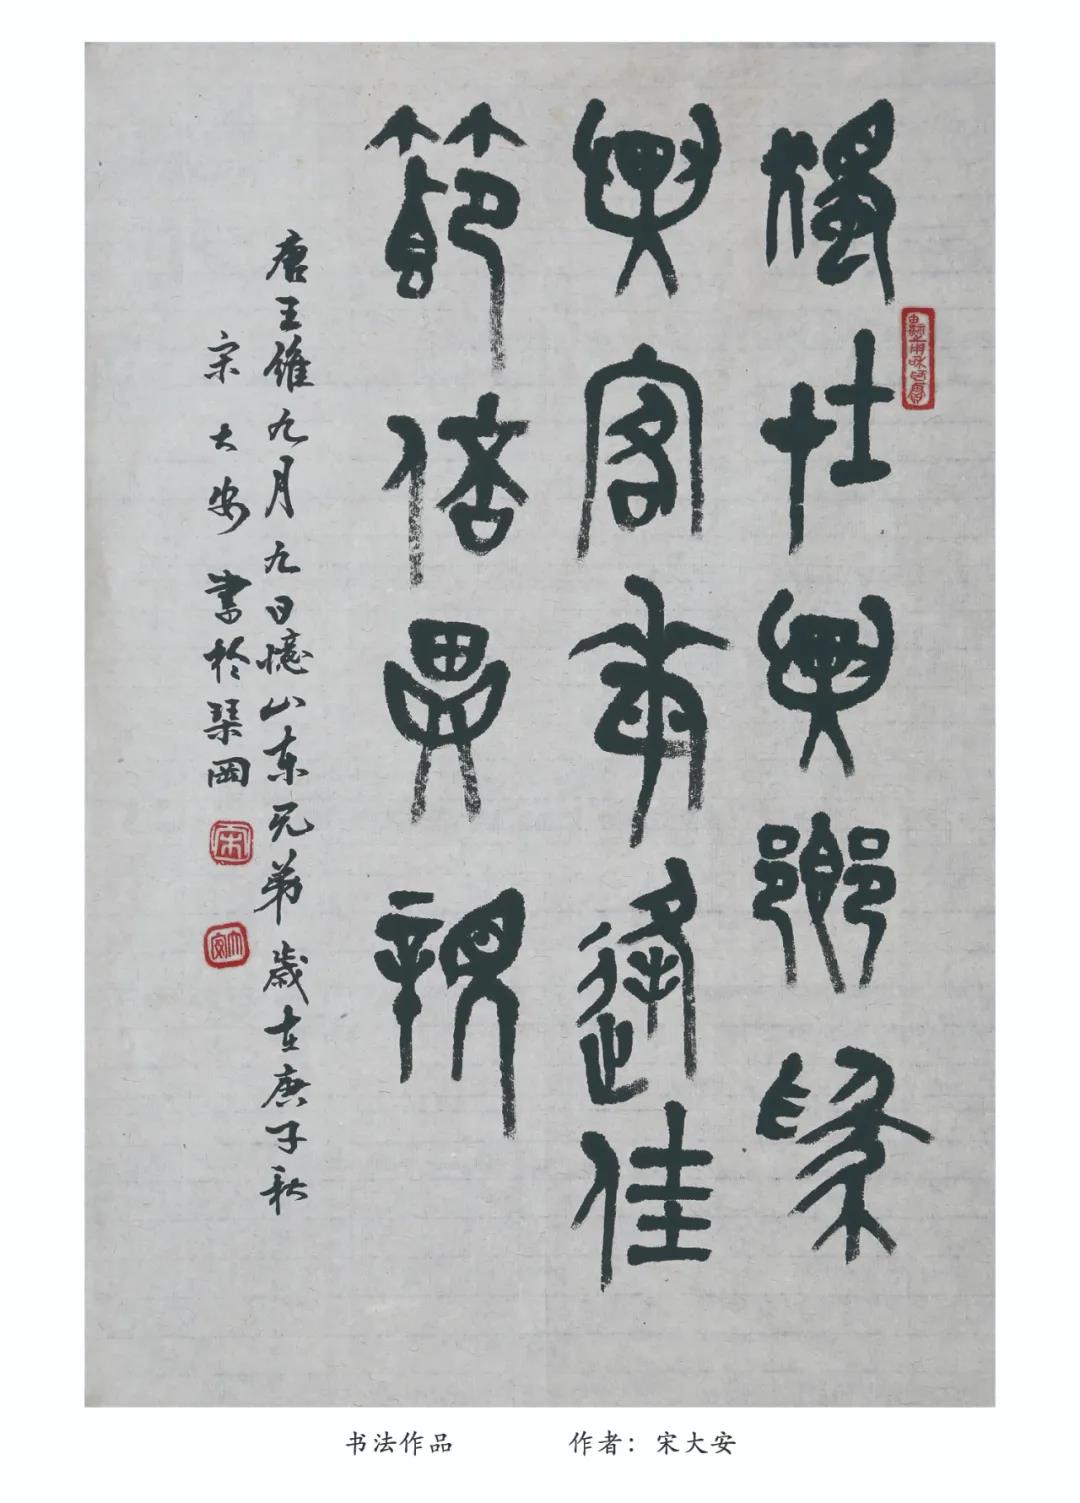 獨在異鄉為
異客每逢佳
節倍思親
唐王維九月九日憶山東兄弟歲在庚子秋
宋大安書於琹岡
宋
大安
书法作品 作者：宋大安